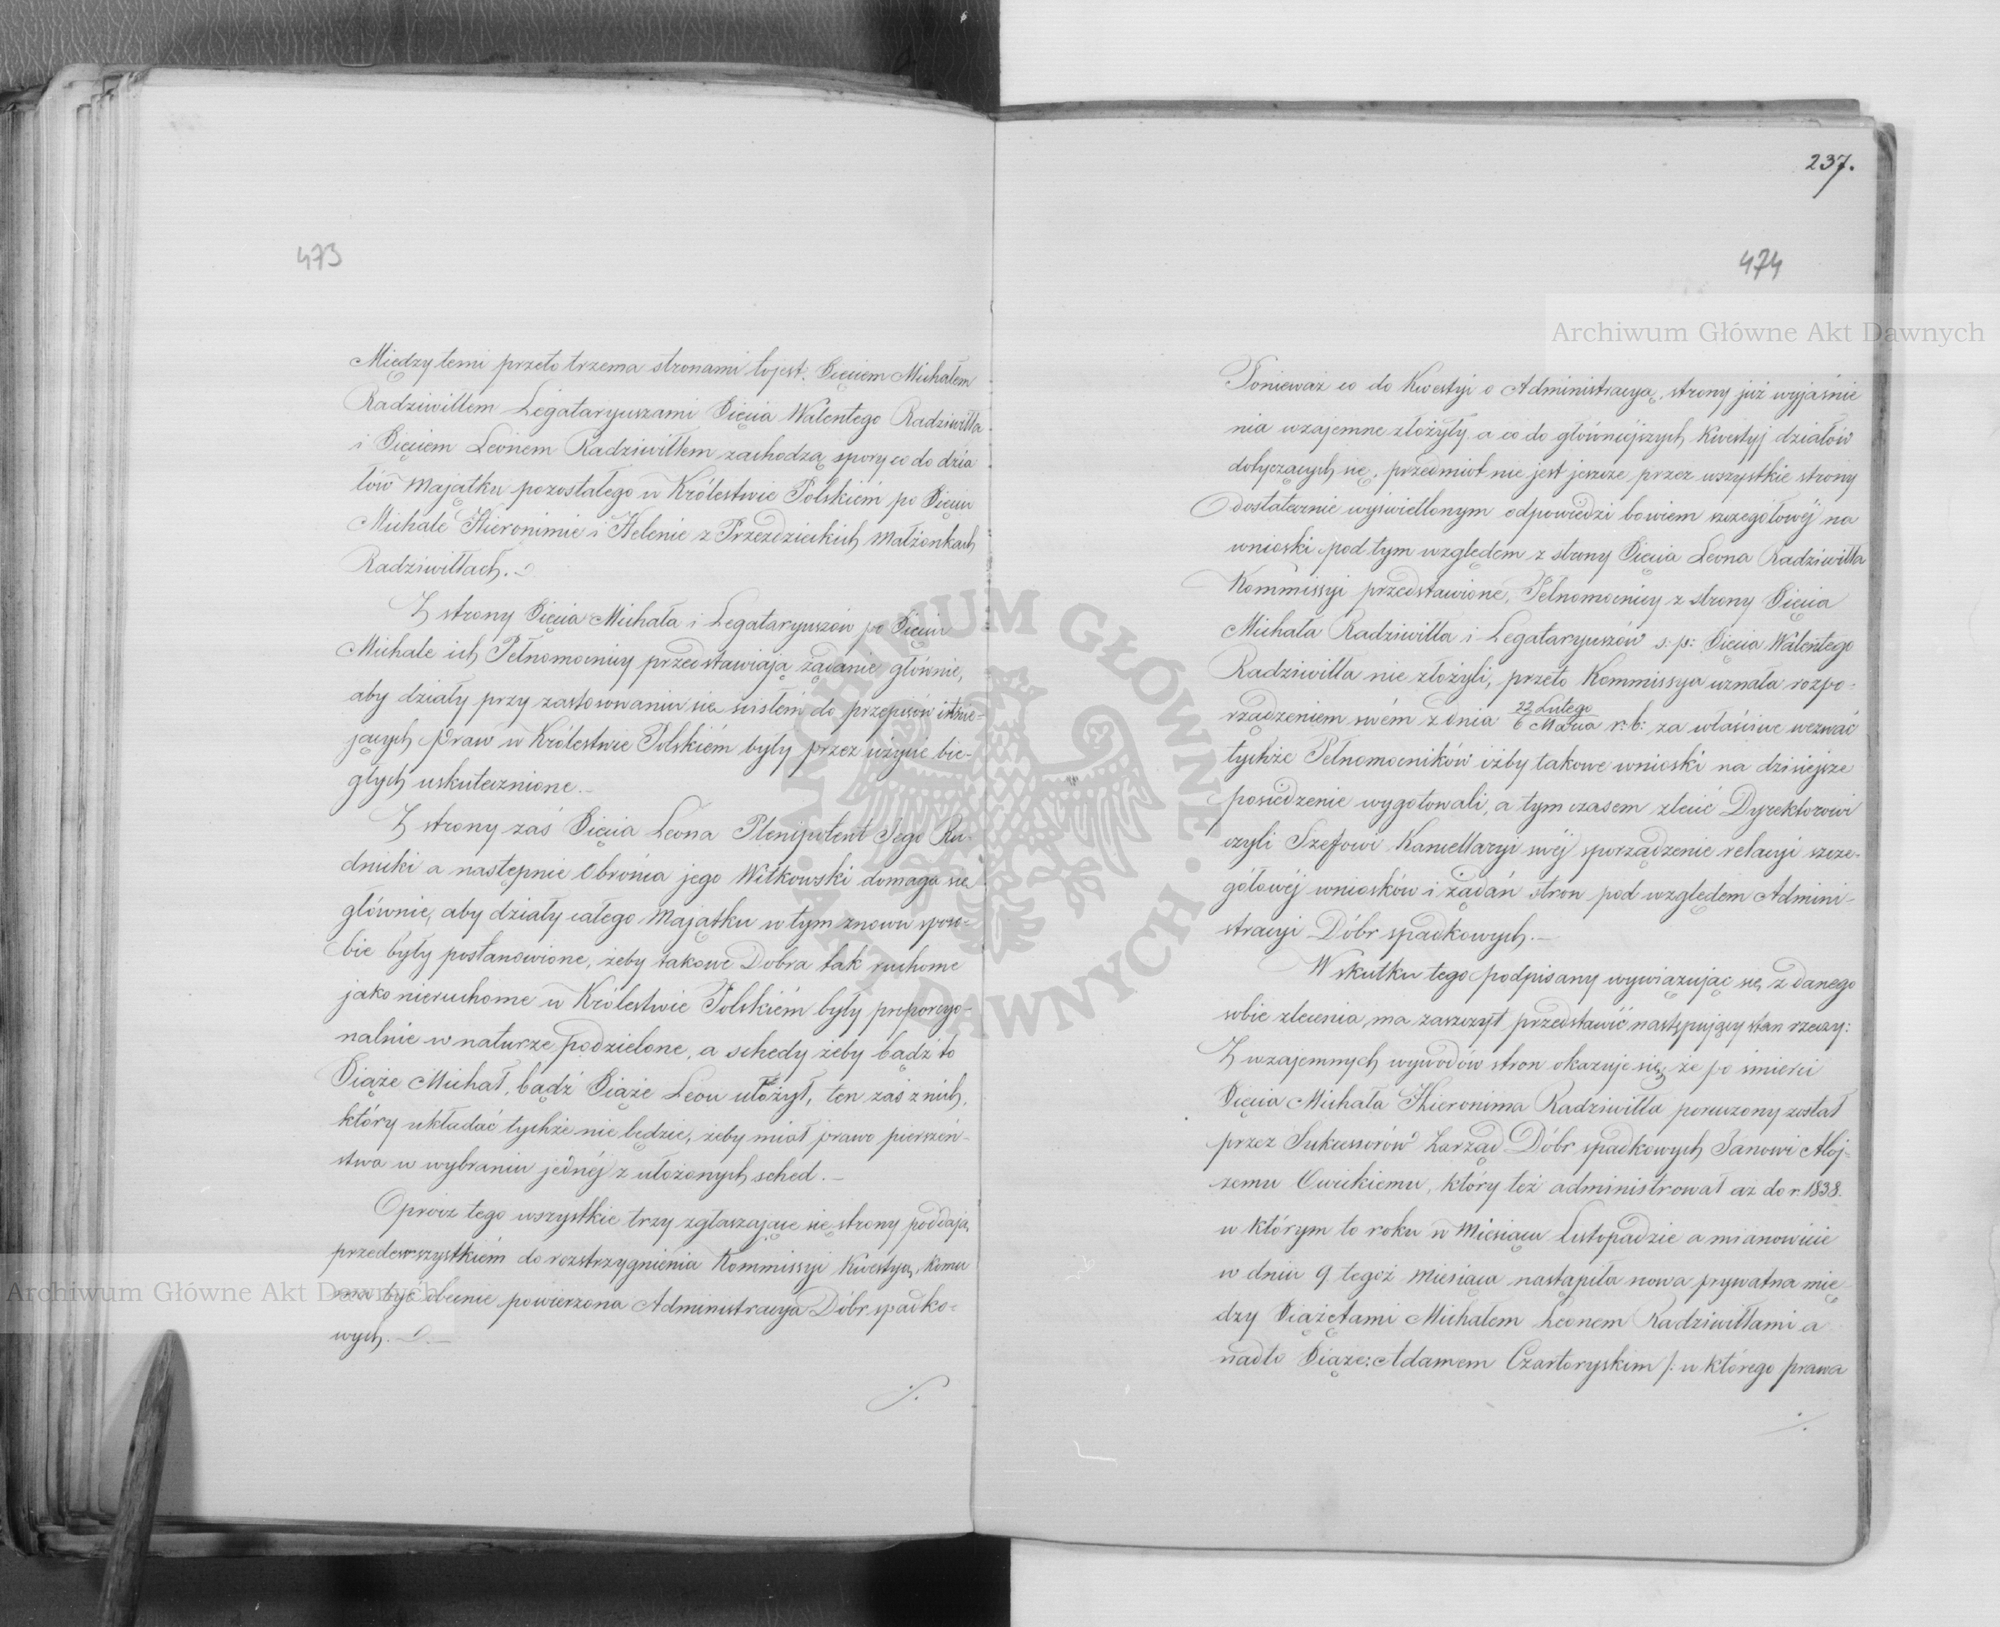 473
Między temi przeto trzema stronami tojest: Xięciem Michałem
Radziwiłłem Legataryuszami Xięcia Walentego Radziwiłła
i Xięciem Leonem Radziwiłłem zachodzą spory co do dzia
łów Majątku pozostałego w Królestwie Polskiém po Xięciu
Michale Hieronimie i Helenie z Przezdzieckich Małżonkach
Radziwiłłach.
Z strony Xięcia Michała i Legataryuszów po Xięciu
Michale ich Pełnomocnicy przedstawiają żądanie głównie,
aby działy przy zastosowaniu się wisłem do przepisów istnie-
jących Praw w Królestwie Polskiém były przez użycie bie-
głych uskutecznione.
Z strony zaś Xięcia Leona Plenipotent Jego Ru-
dnicki a następnie Obrońca jego Witkowski domaga się
głównie, aby działy całego Majątku w tym znowu sposo-
bie były postanowione, żeby takowe Dobra tak ruchome
jako nieruchome w Królestwie Polskiém były proporcyo-
nalnie w naturze podzielone, a schedy żeby bądź to
Xiąże Michał, bądź Xiąże Leon ułożył, ten zaś z nich,
który układać tychże nie będzie, żeby miał prawo pierszeń-
stwa w wybraniu jednéj z ułożonych sched.
Oprócz tego wszystkie trzy zgłaszające się strony poddają
przedewszystkiém do rozstrzygnienia Kommissyi Kwestyą, komu
ma być obecnie powierzona Administracya Dóbr spadko-
wych.
237.
474
Ponieważ co do Kwestyi o Administracyą, strony już wyjaśnie
nia wzajemne złożyły, a co do główniejszych Kwestyj działów
dotyczących się, przedmiot nie jest jeszcze przez wszystkie strony
dostatecznie wyświetlonym odpowiedzi bowiem szczegółowéj na
wnioski pod tym względem z strony Xięcia Leona Radziwiłła
Kommissyi przedstawione, Pełnomocnicy z strony Xięcia
Michała Radziwiłła i Legataryuszów ś: p: Xięcia Walentego
Radziwiłła nie złożyli, przeto Kommissya uznała rozpo-
rządzeniem swém z dnia 22 Lutego / 6 Marca r: b: za właściwe wezwać
tychże Pełnomocników iżby takowe wnioski na dzisiejsze
posiedzenie wygotowali, a tym czasem zlecić Dyrektorowi
czyli Szefowi Kancellaryi swéj sporządzenie relacyi szcze-
gółowéj wniosków i żądań stron pod względem Admini-
stracyi Dóbr spadkowych.
W skutku tego podpisany wywiązując się z danego
sobie zlecenia, ma zaszczyt przedstawić następujący stan rzeczy:
Z wzajemnych wywodów stron okazuje się, że po śmierci
Xięcia Michała Hieronima Radziwiłła poruczony został
przez Sukcessorów Zarząd Dóbr spadkowych Janowi Aloj-
zemu Cwickiemu, który też administrował aż do r. 1838.
w którym to roku w Miesiącu Listopadzie a mianowicie
w dniu 9 tegoż Miesiąca nastąpiła nowa prywatna mię-
dzy Xiążętami Michałem Leonem Radziwiłłami a
nadto Xiąże: Adamem Czartoryskim /: w którego prawa
Archiwum Główne Akt Dawnych
Archiwum Główne Akt Dawnych
ARCHIWUM GŁÓWNE · AKT DAWNYCH ·